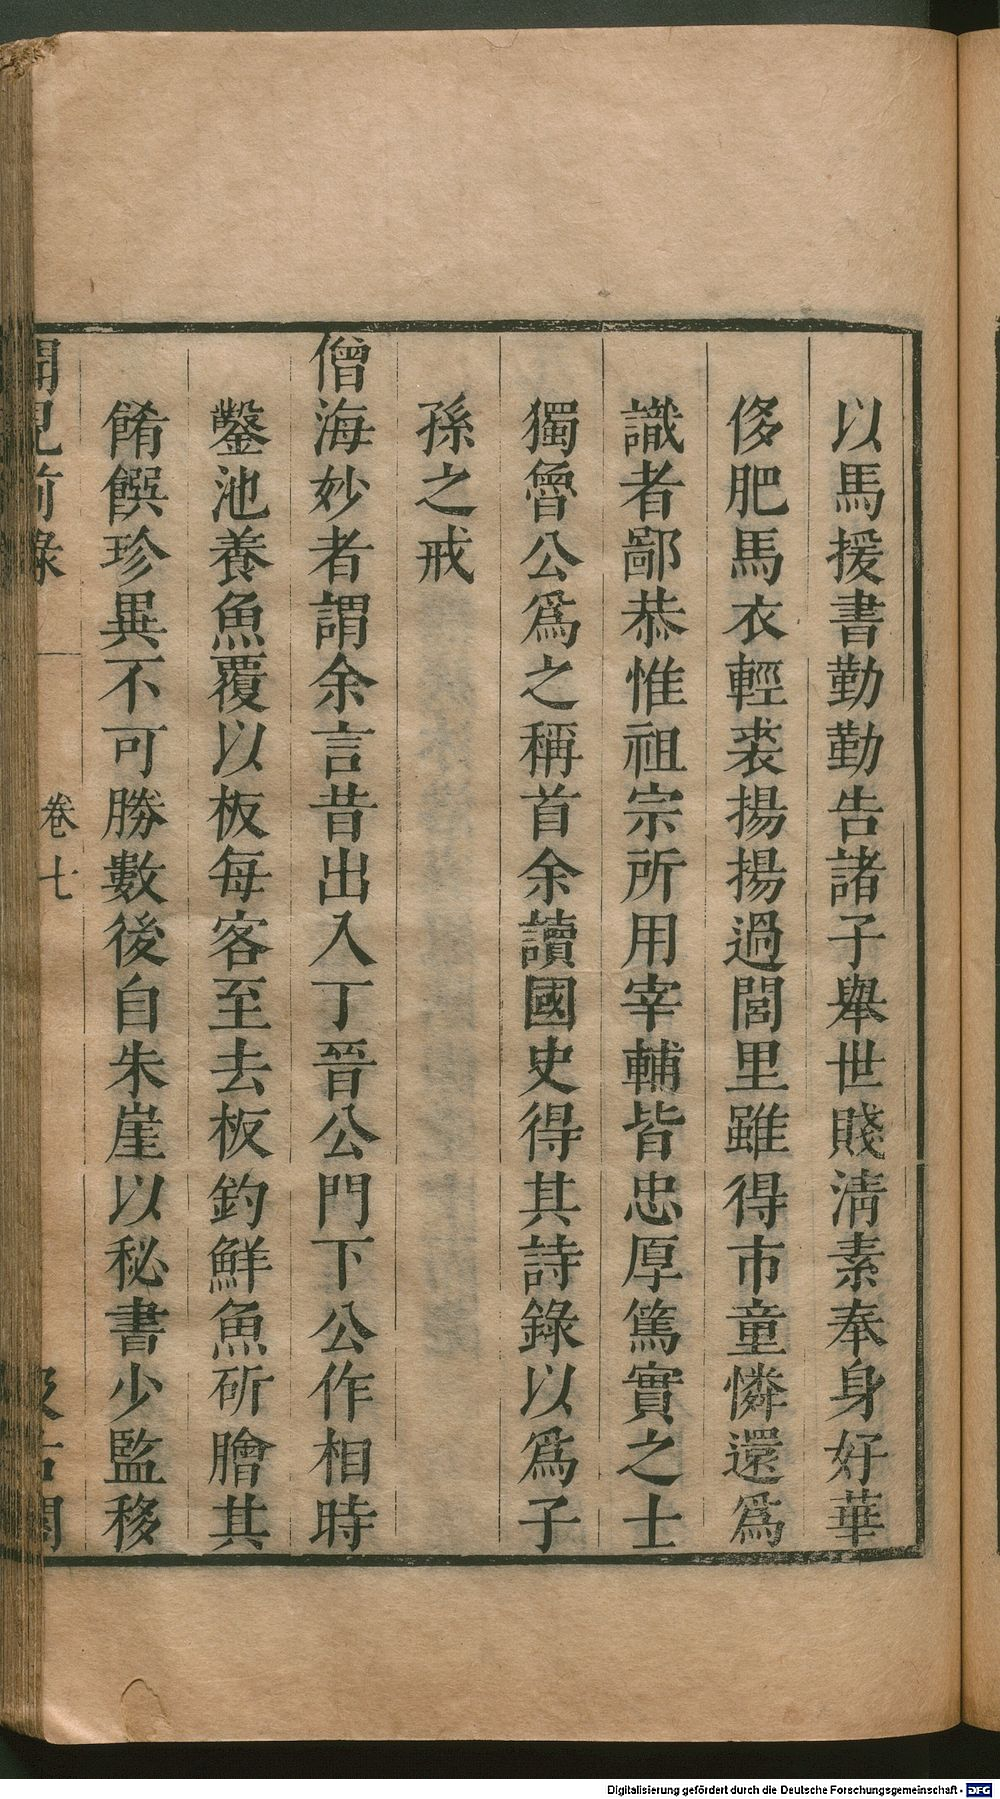 以馬援書勤勤告諸子舉世賤清素奉身好華
侈肥馬衣輕裘揚揚過閭里雖得市童憐還爲
識者鄙恭惟祖宗所用宰輔皆忠厚篤實之士
獨魯公爲之稱首余讀國史得其詩錄以爲子
孫之戒
僧海妙者謂余言昔出入丁晉公門下公作相時
鑿池養魚覆以板每客至去板釣鮮魚斫膾其
餚饌珍異不可勝數後自朱崖以秘書少監移
聞見前錄 卷七 汲古閣
Digitalisierung gefördert durch die Deutsche Forschungsgemeinschaft - DFG